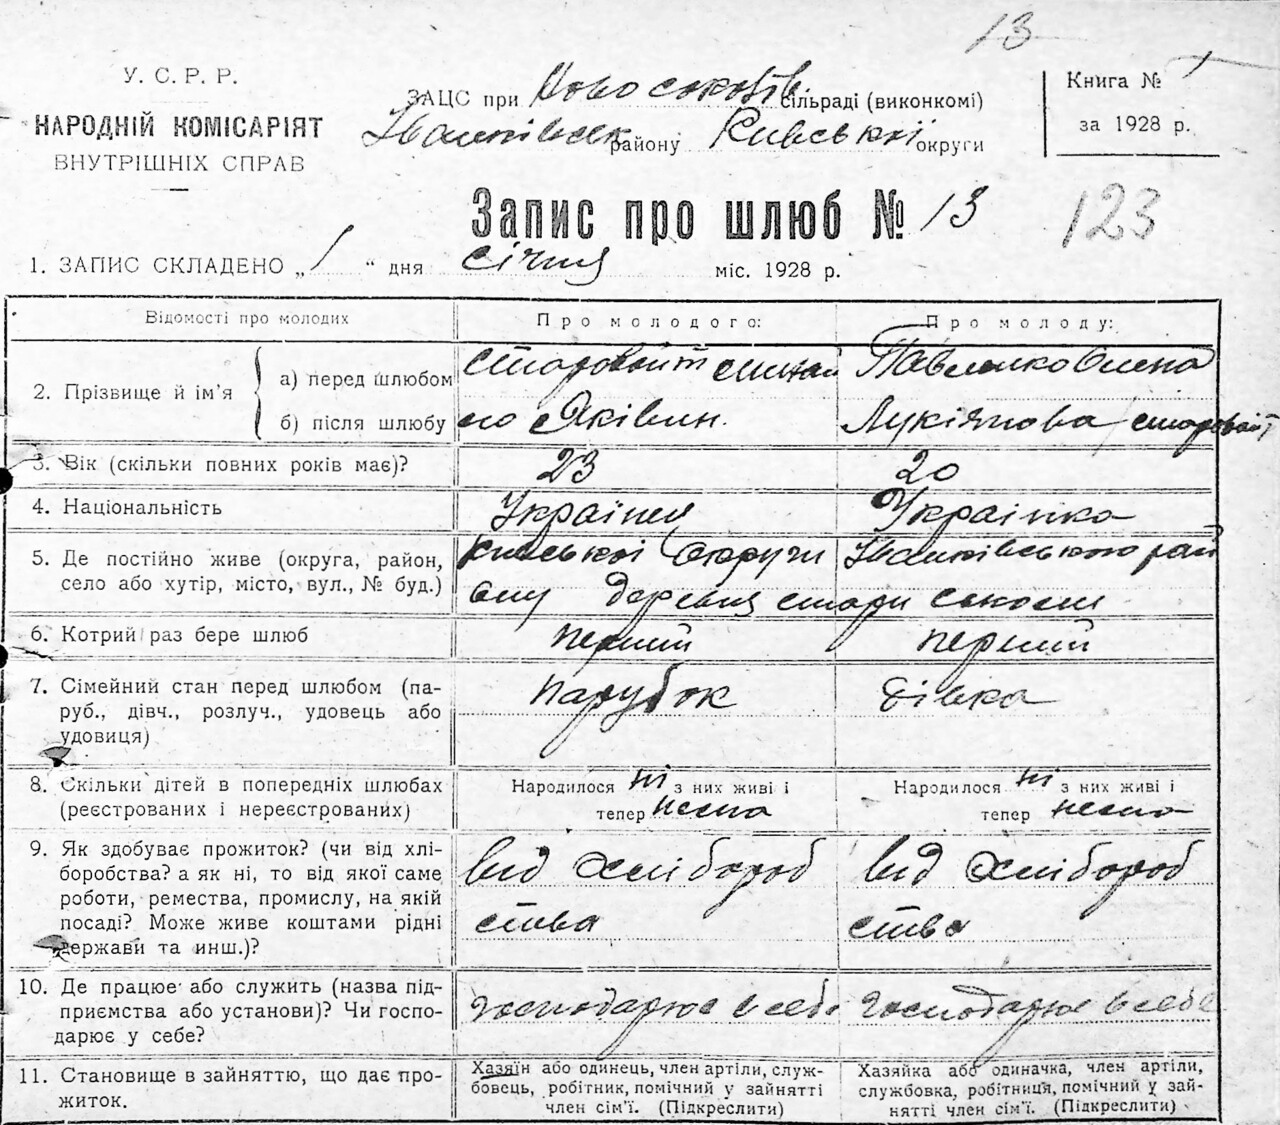 13
У. С. Р. Р.
НАРОДНІЙ КОМІСАРІЯТ
ВНУТРІШНІХ СПРАВ
ЗАЦС при сільраді (виконкомі)
району Київської округи
Книга № 1
за 1928 р.
Запис про шлюб № 13
123
1. ЗАПИС СКЛАДЕНО „1“ дня січня міс. 1928 р.
Відомості про молодих
Про молодого:
Про молоду:
2. Прізвище й ім'я
а) перед шлюбом
б) після шлюбу
Старовойт
Яківич.
Павленко Олена
Лукіянова / старовойт
3. Вік (скільки повних років має)?
23
20
4. Національність
Українец
Українка
5. Де постійно живе (округа, район, село або хутір, місто, вул., № буд.)
Київської округи
Іванківського рай
ону деревня стари соколи
6. Котрий раз бере шлюб
перший
перший
7. Сімейний стан перед шлюбом (па-
руб., дівч., розлуч., удовець або
удовиця)
парубок
дівка
8. Скільки дітей в попередніх шлюбах
(реєстрованих і нереєстрованих)
Народилося ні з них живі і
тепер нема
Народилося ні з них живі і
тепер нема
9. Як здобуває прожиток? (чи від хлі-
боробства? а як ні, то від якої саме
роботи, ремества, промислу, на якій
посаді? Може живе коштами рідні
держави та инш.)?
вид хлібороб
ства
вид хлібороб
ства
10. Де працює або служить (назва під-
приємства або установи)? Чи госпо-
дарює у себе?
господарює в себе
господарює в себе
11. Становище в зайняттю, що дає про-
житок.
Хазяїн або одинець, член артіли, служ-
бовець, робітник, помічний у зайнятті
член сім'ї. (Підкреслити)
Хазяйка або одиначка, член артіли,
службовка, робітниця, помічний у зай-
нятті член сім'ї. (Підкреслити)